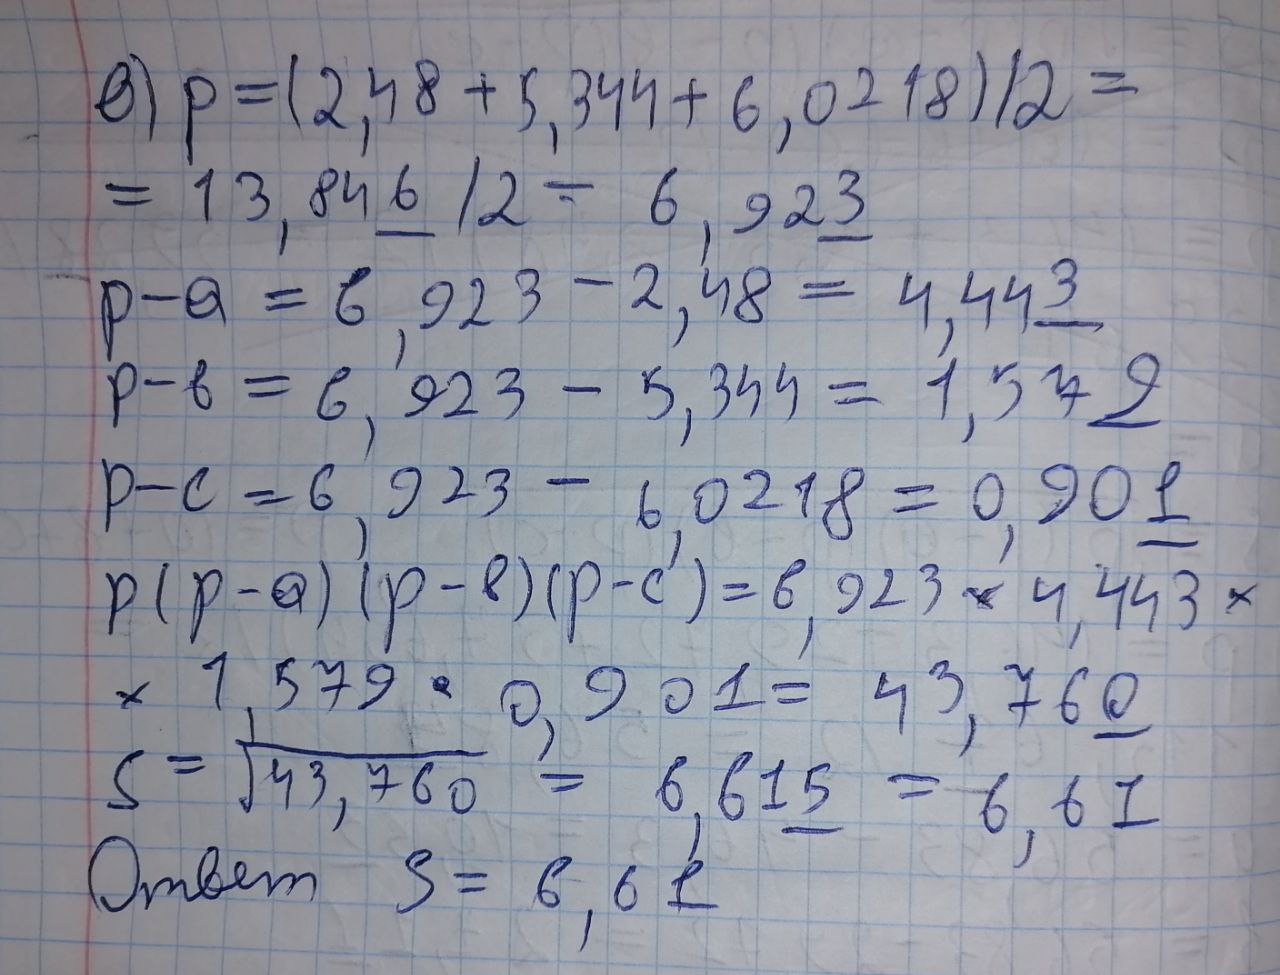 в) p=(2,48+5,344+6,0218)/2=
= 13,846 /2= 6,923
p-a = 6,923-2,48= 4,443
p-в = 6,923 - 5,344= 1,579
p-c = 6,923 - 6,0218 = 0,901
p(p-a)(p-в)(p-c)=6,923 × 4,443 ×
× 1,579 · 0,901= 43,760
S = √43,760 = 6,615 = 6,61
Ответ S= 6,61